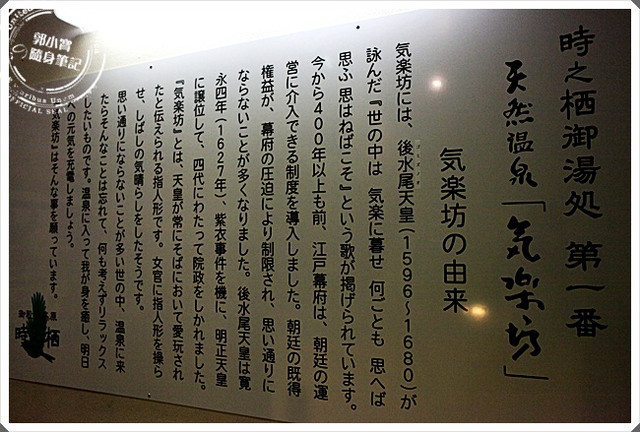 時之栖御湯処 第一番
天然温泉「気楽坊」
気楽坊の由来
気楽坊には、後水尾天皇(1596~1680)が
詠んだ『世の中は 気楽に暮せ 何ごとも 思へば
思ふ 思はねばこそ』という歌が掲げられています。
今から400年以上も前、江戸幕府は、朝廷の運
営に介入できる制度を導入しました。朝廷の既得
権益が、幕府の圧迫により制限され、思い通りに
ならないことが多くなりました。後水尾天皇は寛
永四年(1627年)、紫衣事件を機に、明正天皇
に譲位して、四代にわたって院政をしかれました。
『気楽坊』とは、天皇が常にそばにおいて愛玩され
たと伝えられる指人形です。女官に指人形を操ら
せ、しばしの気晴らしをしたそうです。
思い通りにならないことが多い世の中、温泉に来
たらそんなことは忘れて、何も考えずリラックス
したいものです。温泉に入って我が身を癒し、明日
の元気を充電しましょう。
気楽坊』はそんな事を願っています。
時 栖
郭小寶
の隨身筆記
OFFICIAL SEAL